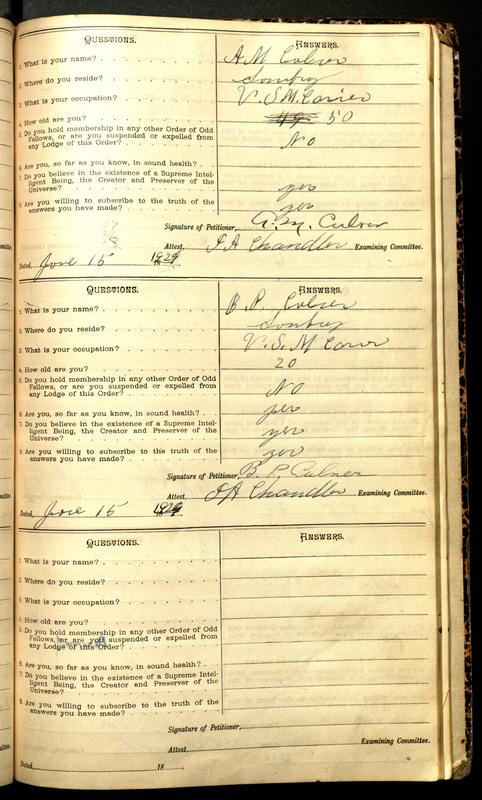 QUESTIONS. ANSWERS.
1. What is your name? A M Culver
2. Where do you reside?
3. What is your occupation? U. S M. Carrier
4. How old are you? 49. 50
5. Do you hold membership in any other Order of Odd
Fellows, or are you suspended or expelled from
any Lodge of this Order? No
6. Are you, so far as you know, in sound health?
7. Do you believe in the existence of a Supreme Intel-
ligent Being, the Creator and Preserver of the
Universe? yes
8. Are you willing to subscribe to the truth of the
answers you have made? yes
Signature of Petitioner, A. M. Culver
Attest, J A Chandler Examining Committee.
Dated, June 15 1929
QUESTIONS. ANSWERS.
1. What is your name? B. P. Culver
2. Where do you reside?
3. What is your occupation? U. S. M Carrier
4. How old are you? 20
5. Do you hold membership in any other Order of Odd
Fellows, or are you suspended or expelled from
any Lodge of this Order? No
6. Are you, so far as you know, in sound health? yes
7. Do you believe in the existence of a Supreme Intel-
ligent Being, the Creator and Preserver of the
Universe? yes
8. Are you willing to subscribe to the truth of the
answers you have made? yes
Signature of Petitioner, B. P. Culver
Attest, J A Chandler Examining Committee.
Dated, June 15 1929
QUESTIONS. ANSWERS.
1. What is your name?
2. Where do you reside?
3. What is your occupation?
4. How old are you?
5. Do you hold membership in any other Order of Odd
Fellows, or are you suspended or expelled from
any Lodge of this Order?
6. Are you, so far as you know, in sound health?
7. Do you believe in the existence of a Supreme Intel-
ligent Being, the Creator and Preserver of the
Universe?
8. Are you willing to subscribe to the truth of the
answers you have made?
Signature of Petitioner,
Attest, Examining Committee.
Dated, 18